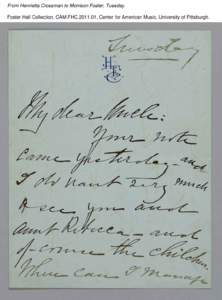 From Henrietta Crossman to Morrison Foster, Tuesday
Foster Hall Collection, CAM.FHC.2011.01, Center for American Music, University of Pittsburgh.
Tuesday
My dear Uncle:
Your note
came yesterday - and
I do want very much
to see you and
Aunt Rebecca - and
of course the children.
When can I manage